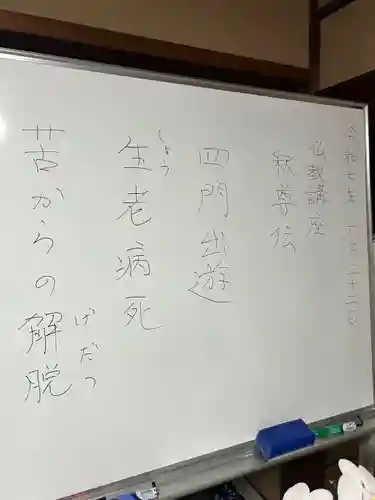 令和七年 一〇二十二日
仏教講座
釈尊伝
四門出遊
しょう
生老病死
苦からの解脱
げだつ